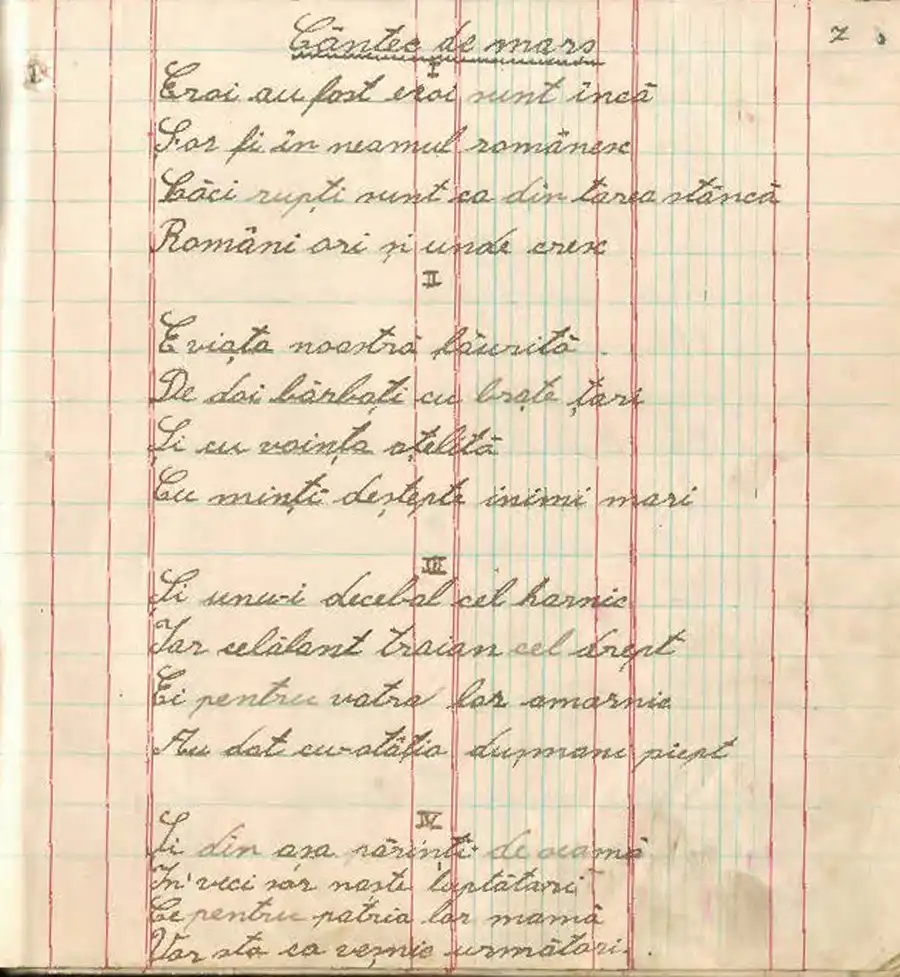 Cântec de mars
7
I
Eroi au fost eroi sunt încă
S-or fi în neamul românesc
Căci rupți sunt ca din tarea stâncă
Români ori și unde cresc
II
E viața noastră făurită
De doi bărbați cu brațe țari
Și cu voința oțelită
Cu minți deștepte inimi mari
III
Și unu-i decebal cel harnic
Iar celălant traian cel drept
Ei pentru vatra lor amarnic
Au dat cu-atâția dușmani piept
IV
Și din așa părinți de seamă
In veci sor naste luptătari
Ce pentru patria lor mamă
Vor sta ca veșnic următori.